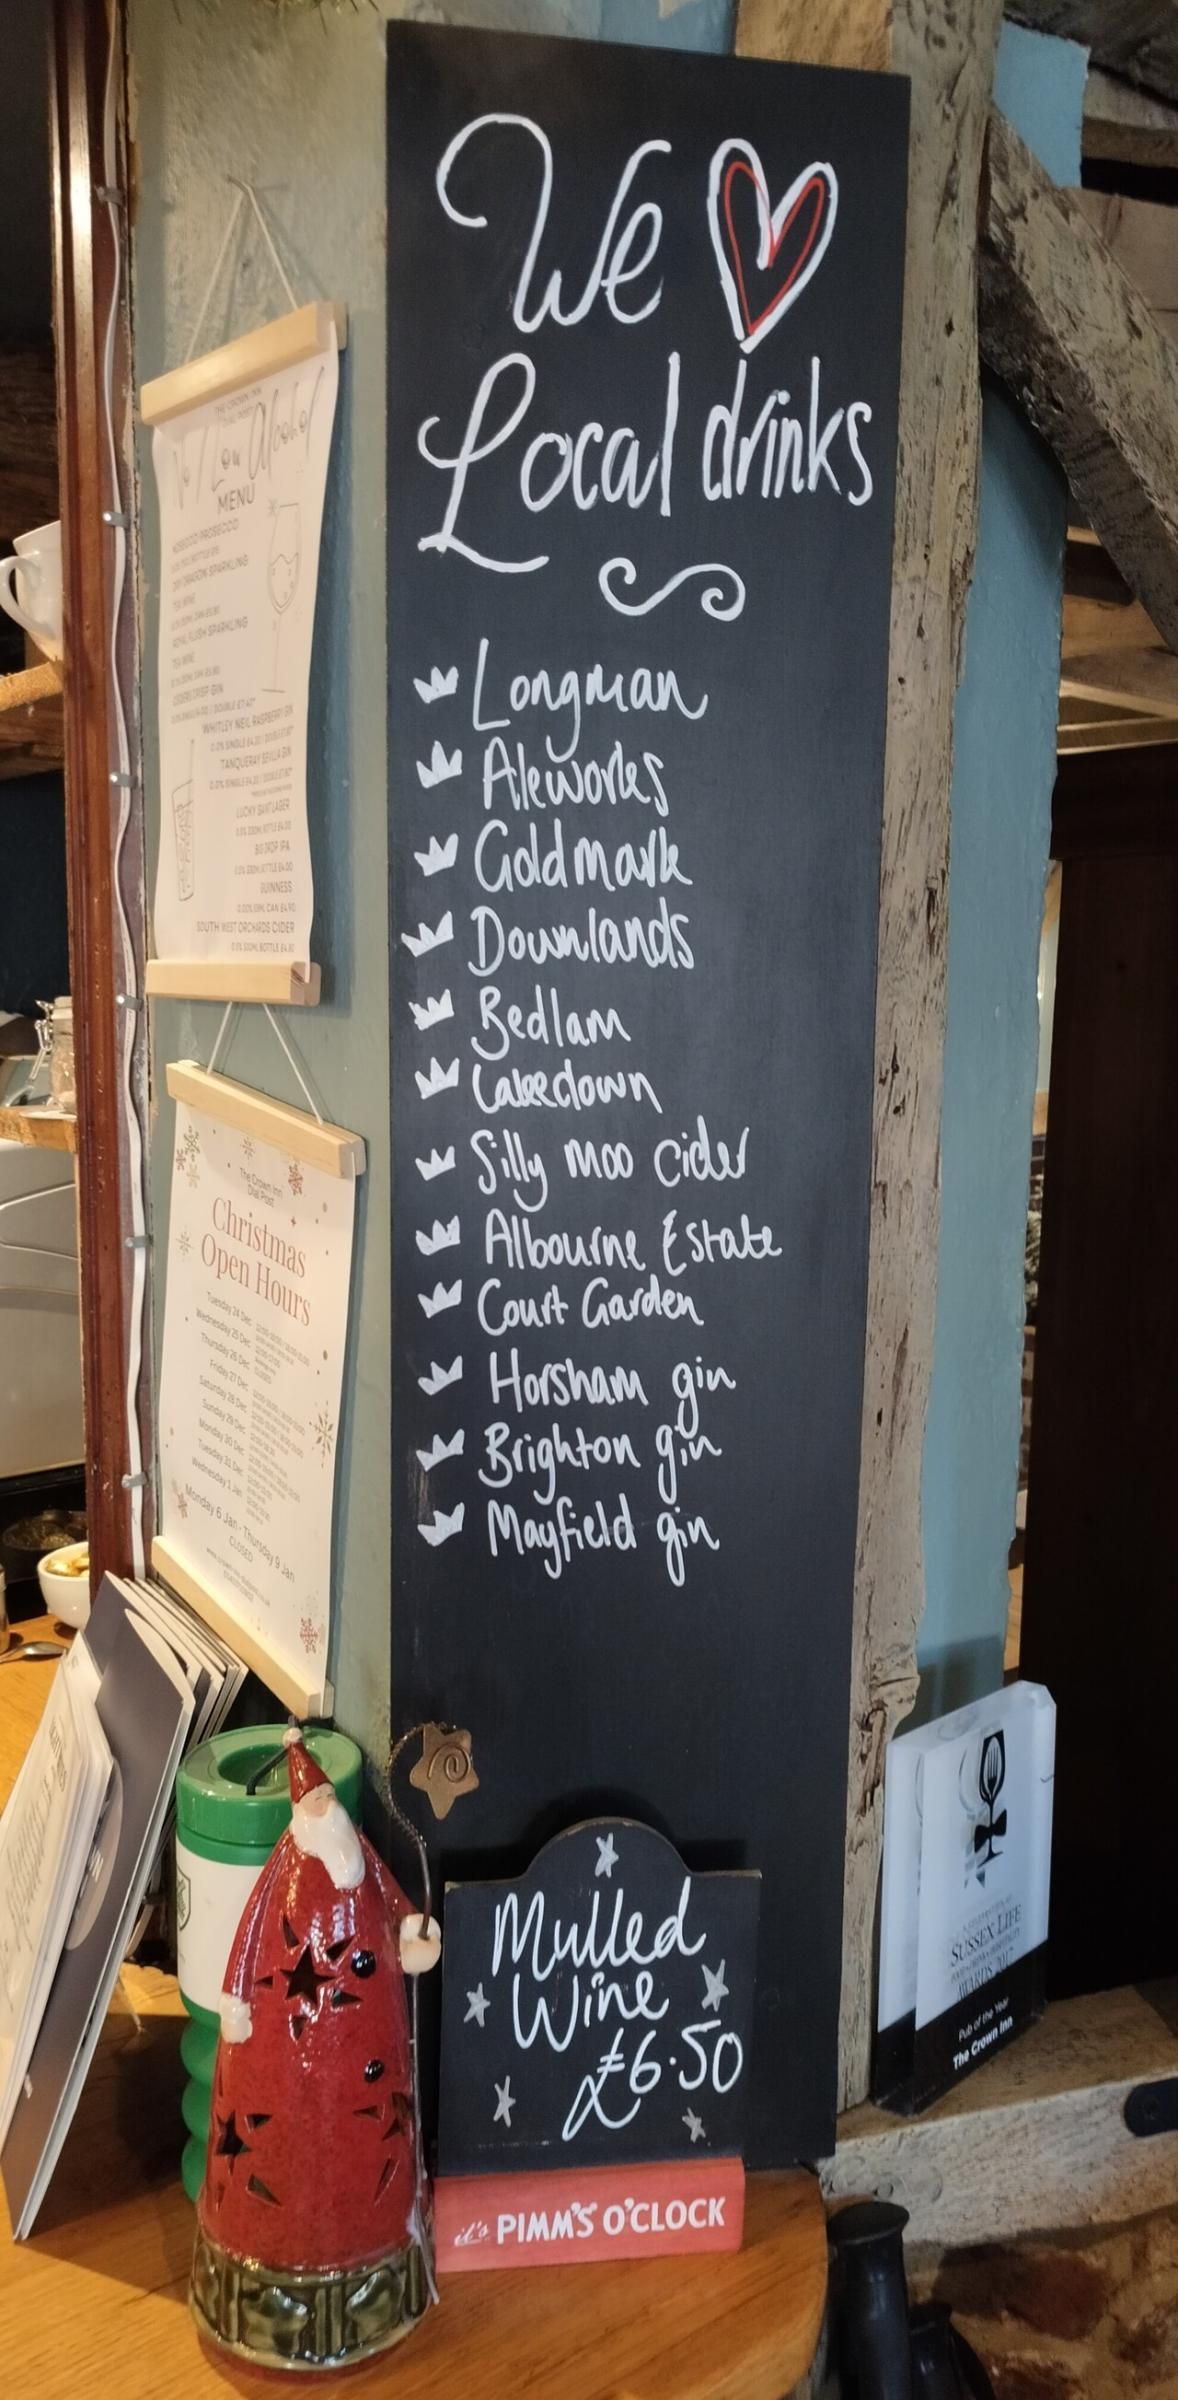 We
Local drinks
Longman
Aleworks
Goldmark
Downlands
Bedlam
Lakedown
Silly moo cider
Albourne Estate
Court Garden
Horsham gin
Brighton gin
Mayfield gin
Mulled
Wine
£6.50
it's PIMM'S O'CLOCK
THE CROWN INN
DIAL POST
No / Low Alcohol
MENU
NOSECCO PROSECCO
DRY DRAGON SPARKLING
TEA WINE
ROYAL FLUSH SPARKLING
TEA WINE
WHITLEY NEIL RASPBERRY GIN
TANQUERAY SEVILLA GIN
LUCKY SAINT LAGER
BIG DROP IPA
GUINNESS
SOUTH WEST ORCHARDS CIDER
The Crown Inn
Dial Post
Christmas
Open Hours
Tuesday 24 Dec
Wednesday 25 Dec
Thursday 26 Dec
CLOSED
Friday 27 Dec
Saturday 28 Dec
Sunday 29 Dec
Monday 30 Dec
Tuesday 31 Dec
Wednesday 1 Jan
Monday 6 Jan - Thursday 9 Jan
CLOSED
SUSSEX LIFE
AWARDS 2017
Pub of the Year
The Crown Inn